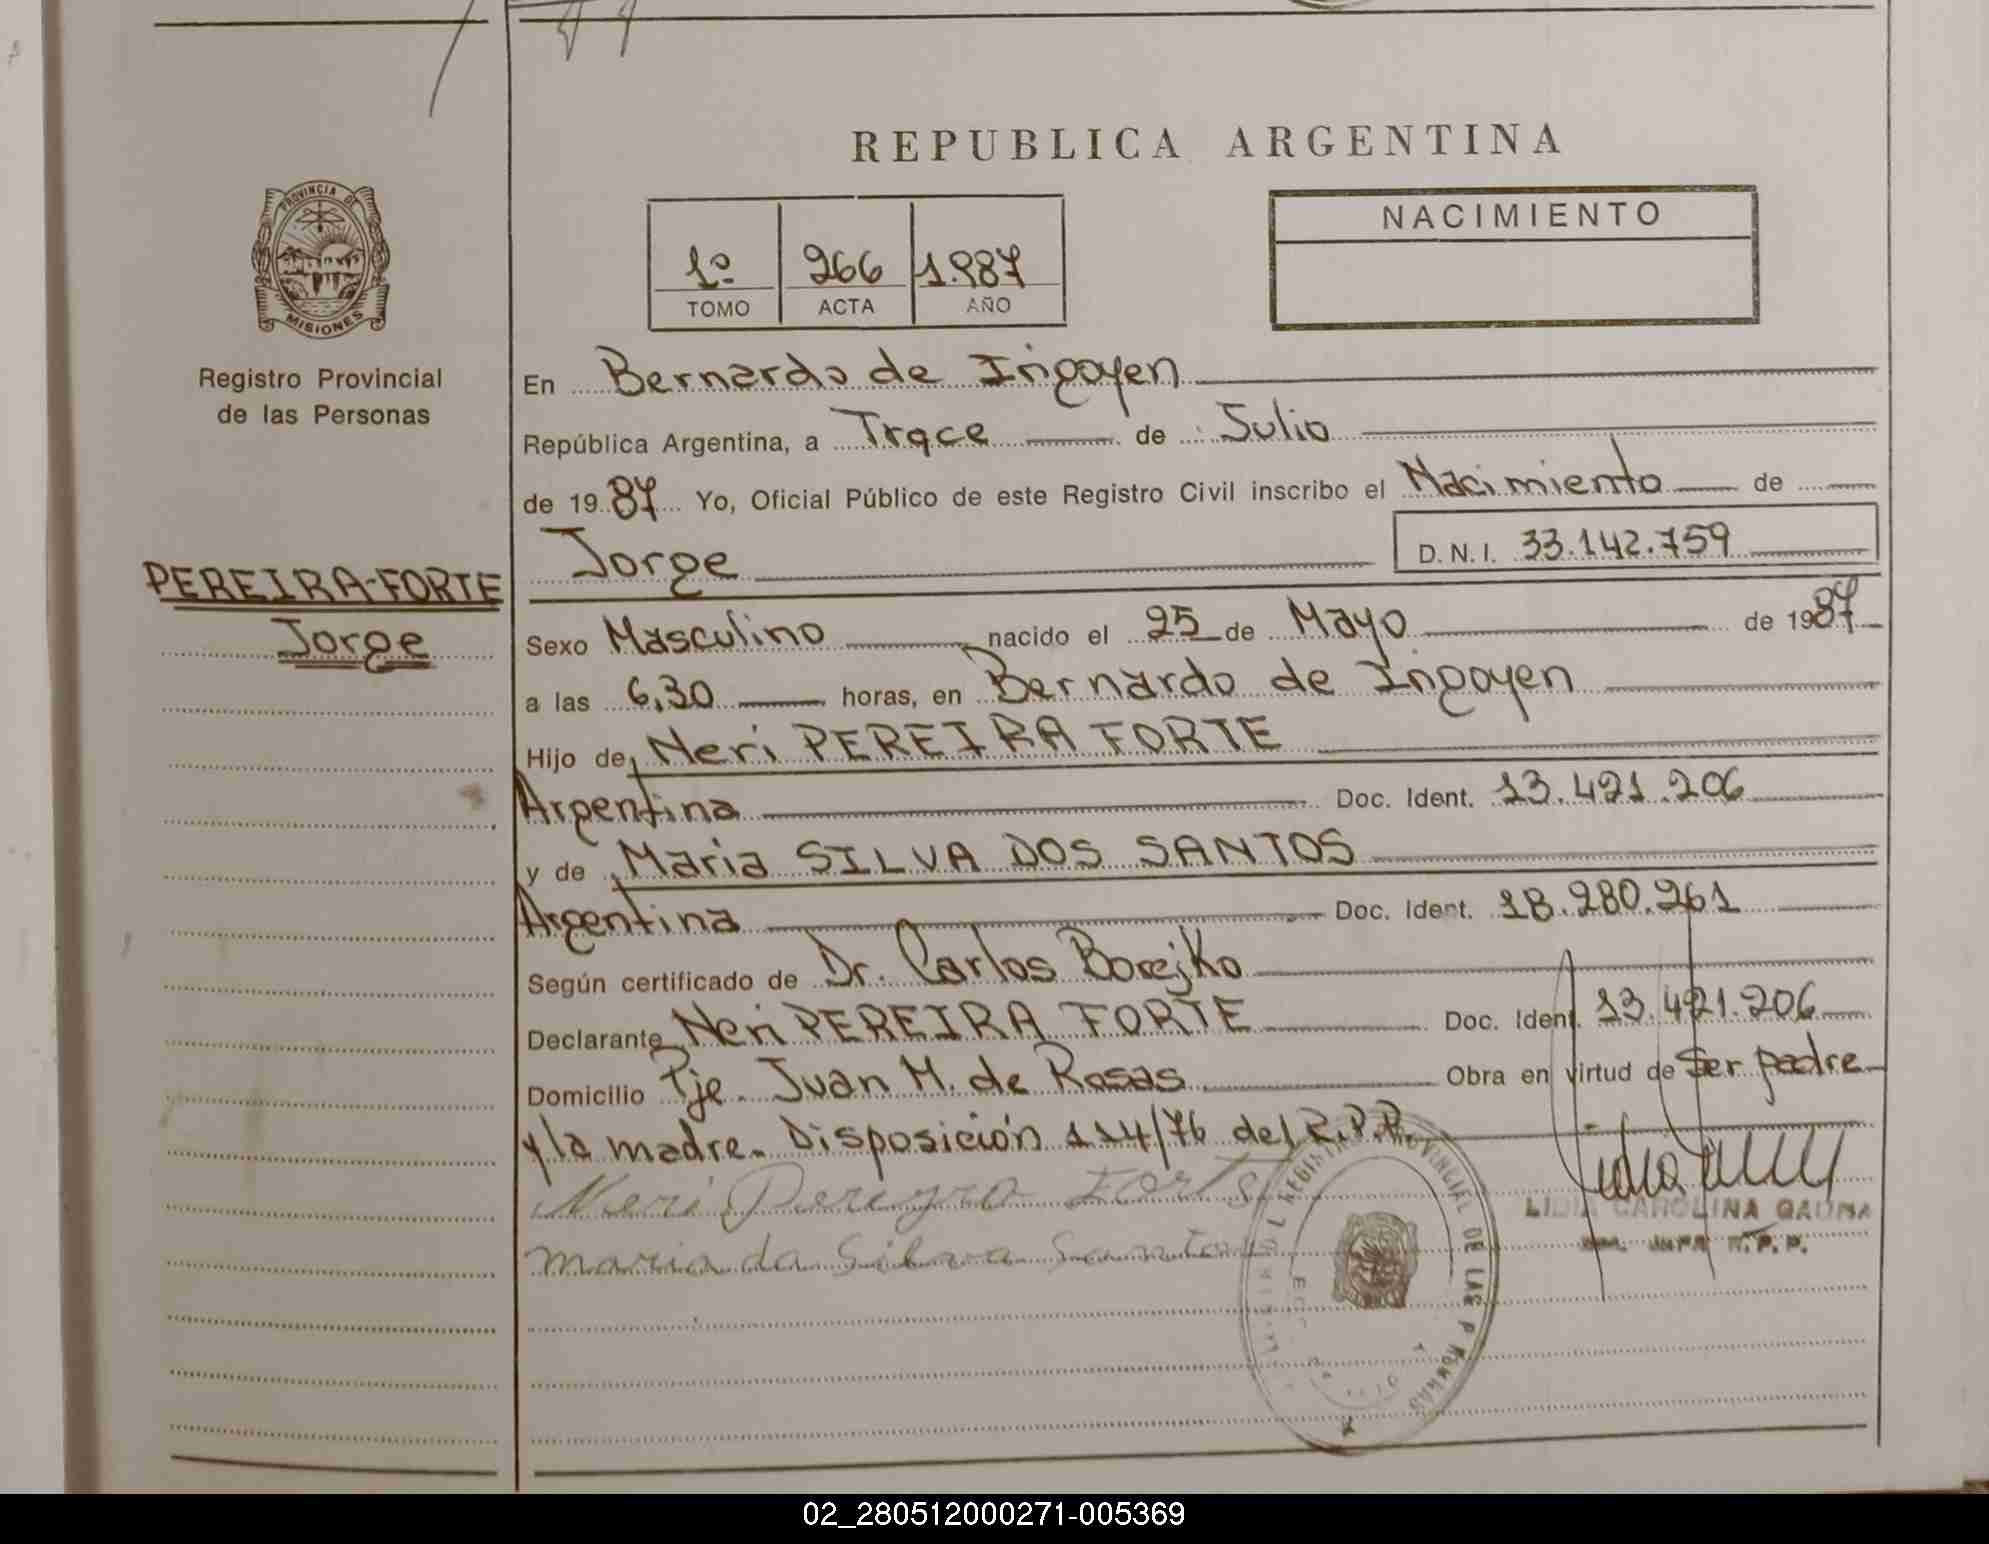 REPUBLICA ARGENTINA
PROVINCIA DE
MISIONES
Registro Provincial
de las Personas
PEREIRA-FORTE
Jorge
1º 266 1.987
TOMO ACTA AÑO
NACIMIENTO
En Bernardo de Irigoyen
República Argentina, a Trece de Julio
de 1987 Yo, Oficial Público de este Registro Civil inscribo el Nacimiento de
Jorge D.N.I. 33.142.759
Sexo Masculino nacido el 25 de Mayo de 1987
a las 6,30 horas, en Bernardo de Irigoyen
Hijo de Neri PEREIRA FORTE
Argentina Doc. Ident. 13.421.206
y de Maria SILVA DOS SANTOS
Argentina Doc. Ident. 18.280.261
Según certificado de Dr. Carlos Borejko
Declarante Neri PEREIRA FORTE Doc. Ident. 13.421.206
Domicilio Pje. Juan M. de Rosas Obra en virtud de Ser padre
y la madre. Disposición 114/76 del R.P.P.
Neri Pereyra Forts
maria da Silva Santos
LIDIA CAROLINA GAUNA
REGISTRO PROVINCIAL DE LAS PERSONAS
02_280512000271-005369